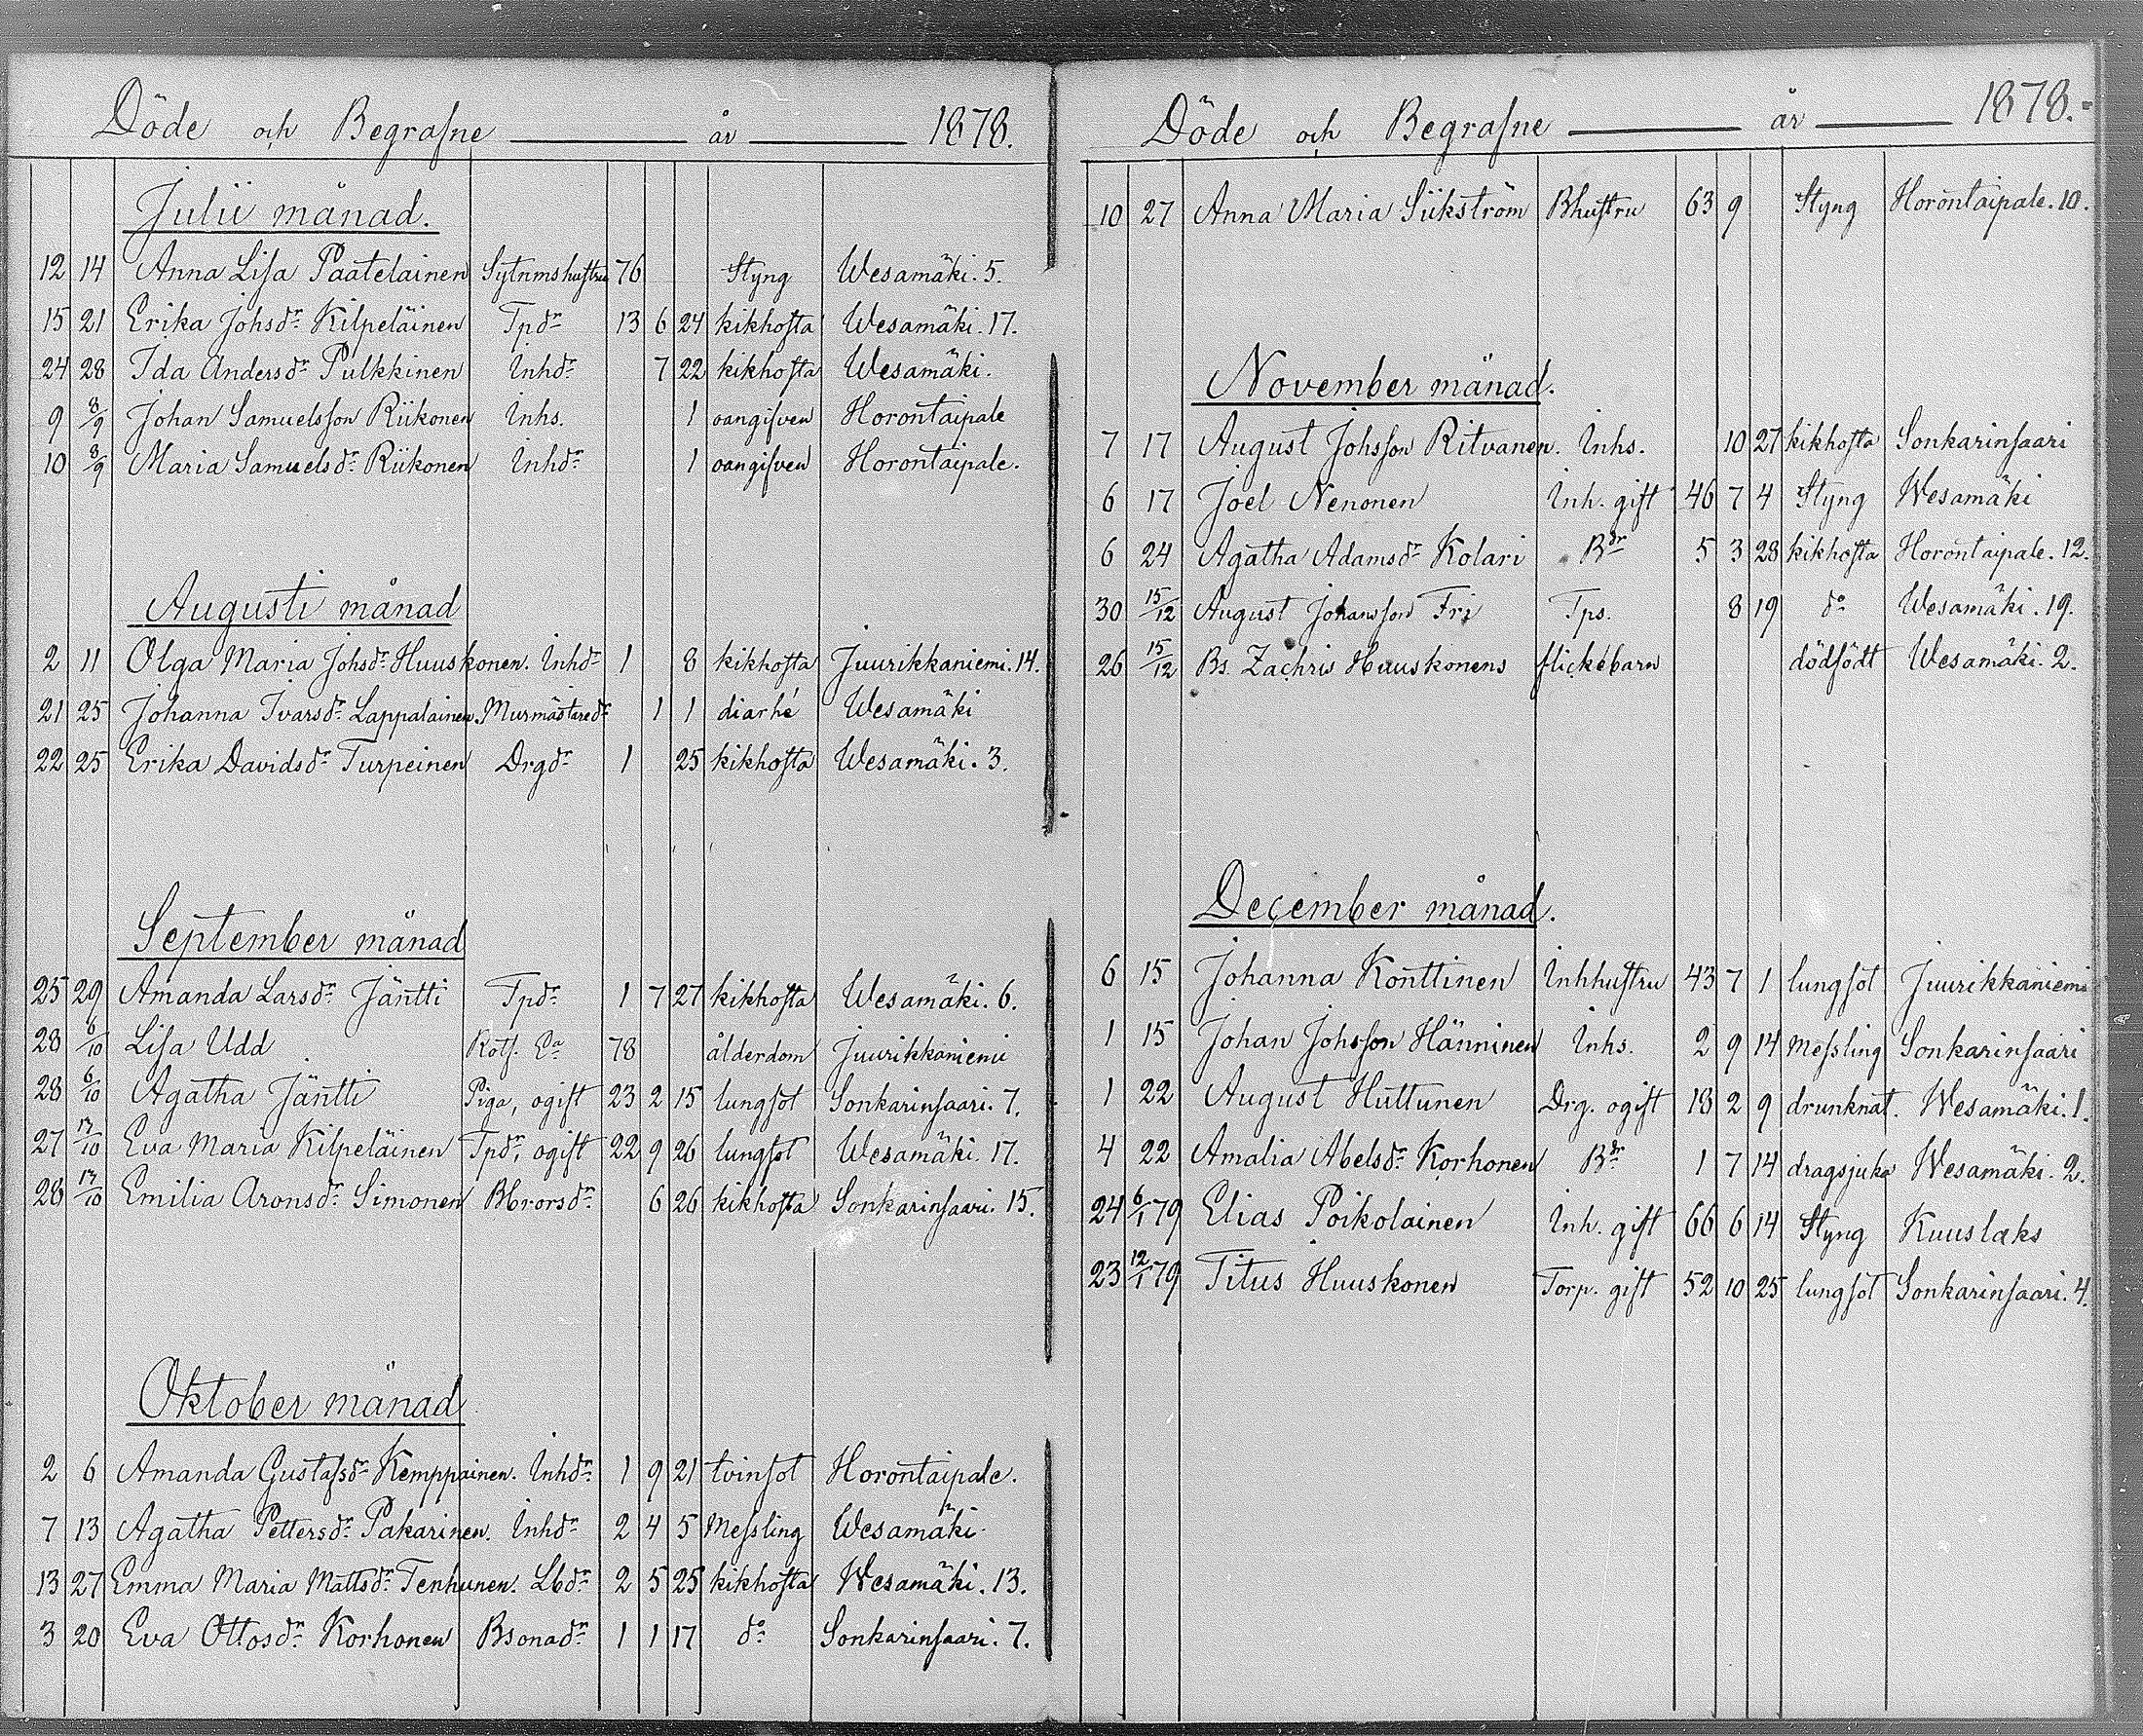 Döde och Begrafne år 1878.
Julii månad.
12 14 Anna Lisa Paatelainen Sytnmshustru 76 Styng Wesamäki. 5.
15 21 Erika Johsdr Kilpeläinen Tpdr 13 6 24 kikhosta Wesamäki. 17.
24 28 Ida Andersdr Pulkkinen Inhdr 7 22 kikhosta Wesamäki.
9 8/9 Johan Samuelsson Riikonen Inhs. 1 oangifven Horontaipale
10 8/9 Maria Samuelsdr Riikonen Inhdr 1 oangifven Horontaipale.
Augusti månad
2 11 Olga Maria Johsdr Huuskonen. Inhdr 1 8 kikhosta Juurikkaniemi. 14.
21 25 Johanna Ivarsdr Lappalainen. Murmästaredr 1 1 diarhé Wesamäki
22 25 Erika Davidsdr Turpeinen Drgdr 1 25 kikhosta Wesamäki. 3.
September månad
25 29 Amanda Larsdr Jäntti Tpdr 1 7 27 kikhosta Wesamäki. 6.
28 6/10 Lisa Udd Rotf. Ea 78 ålderdom Juurikkaniemi
28 6/10 Agatha Jäntti Piga, ogift 23 2 15 lungsot Sonkarinsaari. 7.
27 13/10 Eva Maria Kilpeläinen Tpdr, ogift 22 9 26 lungsot Wesamäki. 17.
28 13/10 Emilia Aronsdr Simonen Bbrorsdr 6 26 kikhosta Sonkarinsaari. 15.
Oktober månad
2 6 Amanda Gustafsdr Kemppainen. Inhdr 1 9 21 tvinsot Horontaipale.
7 13 Agatha Pettersdr Pakarinen. Inhdr 2 4 5 Messling Wesamäki.
13 27 Emma Maria Mattsdr Tenhunen. Lbdr 2 5 25 kikhosta Wesamäki. 13.
3 20 Eva Ottosdr Korhonen Bsonadr 1 1 17 do Sonkarinsaari. 7.
Döde och Begrafne år 1878.
10 27 Anna Maria Siikström Bhustru 63 9 Styng Horontaipale. 10.
November månad.
7 17 August Johsson Ritvanen. Inhs. 10 27 kikhosta Sonkarinsaari
6 17 Joel Nenonen Inh. gift 46 7 4 Styng Wesamäki
6 24 Agatha Adamsdr Kolari Bdr 5 3 28 kikhosta Horontaipale. 12.
30 15/12 August Johansson Fri Tps. 8 19 do Wesamäki. 19.
26 15/12 Bs. Zachris Huuskonens flickebarn dödfödt Wesamäki. 2.
December månad.
6 15 Johanna Konttinen Inhhustru 43 7 1 lungsot Juurikkaniemi
1 15 Johan Johsson Hänninen Inhs. 2 9 14 Messling Sonkarinsaari
1 22 August Huttunen Drg. ogift 18 2 9 drunknat. Wesamäki. 1.
4 22 Amalia Abelsdr Korhonen Bdr 1 7 14 dragsjuka Wesamäki. 2.
24 6/1 79 Elias Poikolainen Inh. gift 66 6 14 Styng Kuuslaks
23 12/1 79 Titus Huuskonen Torp. gift 52 10 25 lungsot Sonkarinsaari. 4.